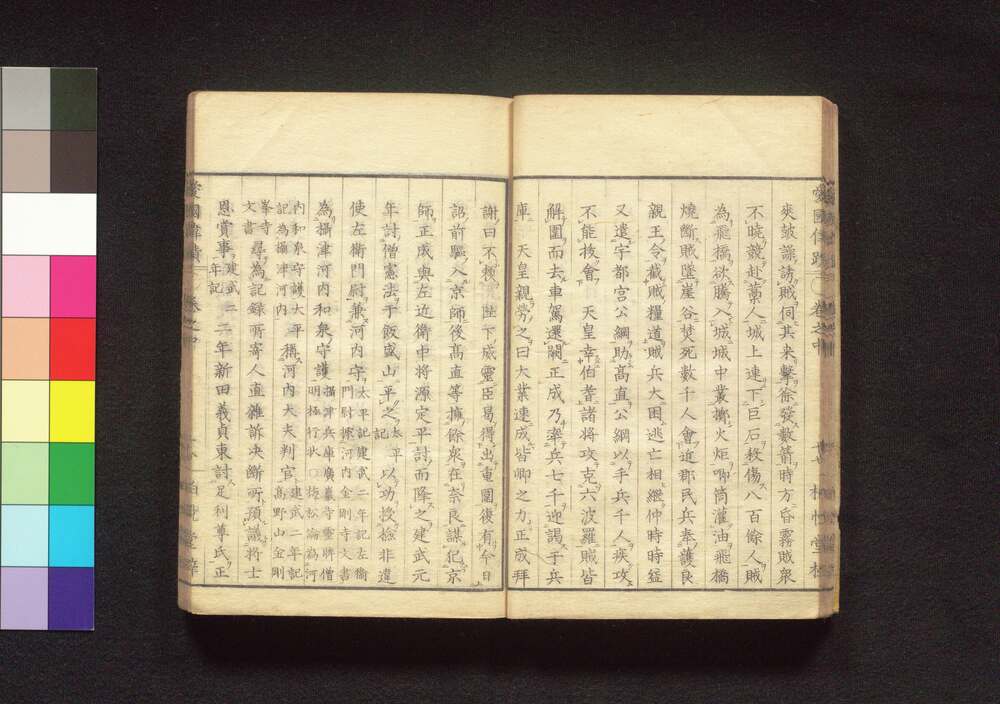 夾鼓譟誘賊伺其来撃徐發數箭時方昏霧賊衆
不暁競赴藁人城上連下巨石殺傷八百餘人賊
為飛橋欲騰入城城中叢擲火炬喞筒灌油飛橋
燒斷賊墜崖谷焚死數千人會近郡民兵奉護良
親王令截賊糧道賊兵大困逃亡相繼仲時時益
又遣宇都宮公綱助高直公綱以手兵千人疾攻
不能拔會　天皇幸伯耆諸将攻克六波羅賊皆
解圍而去車駕還闕正成乃率兵七千迎謁于兵
庫　天皇親勞之曰大業速成皆卿之力正成拜
謝曰不頼　陛下威靈臣易得出重圍復有今日
詔前驅入京師後高直等擁餘衆在奈良謀犯京
師正成與左近衛中将源定平討而降之建武元
年討僧憲法于飯盛山平之太平記以功授檢非違
使左衛門尉兼河内守太平記建武二年記左衛門尉據河内金剛寺文書
為攝津河内和泉守護攝津兵庫廣嚴寺靈牌僧明極行状○梅松論為河
内和泉守護太平記為攝津河内稱河内大夫判官建武二年記高野山金剛
峯寺文書尋為記録所寄人直雜訴决斷所預議将士
恩賞事建武二年記二年新田義貞東討足利尊氏正